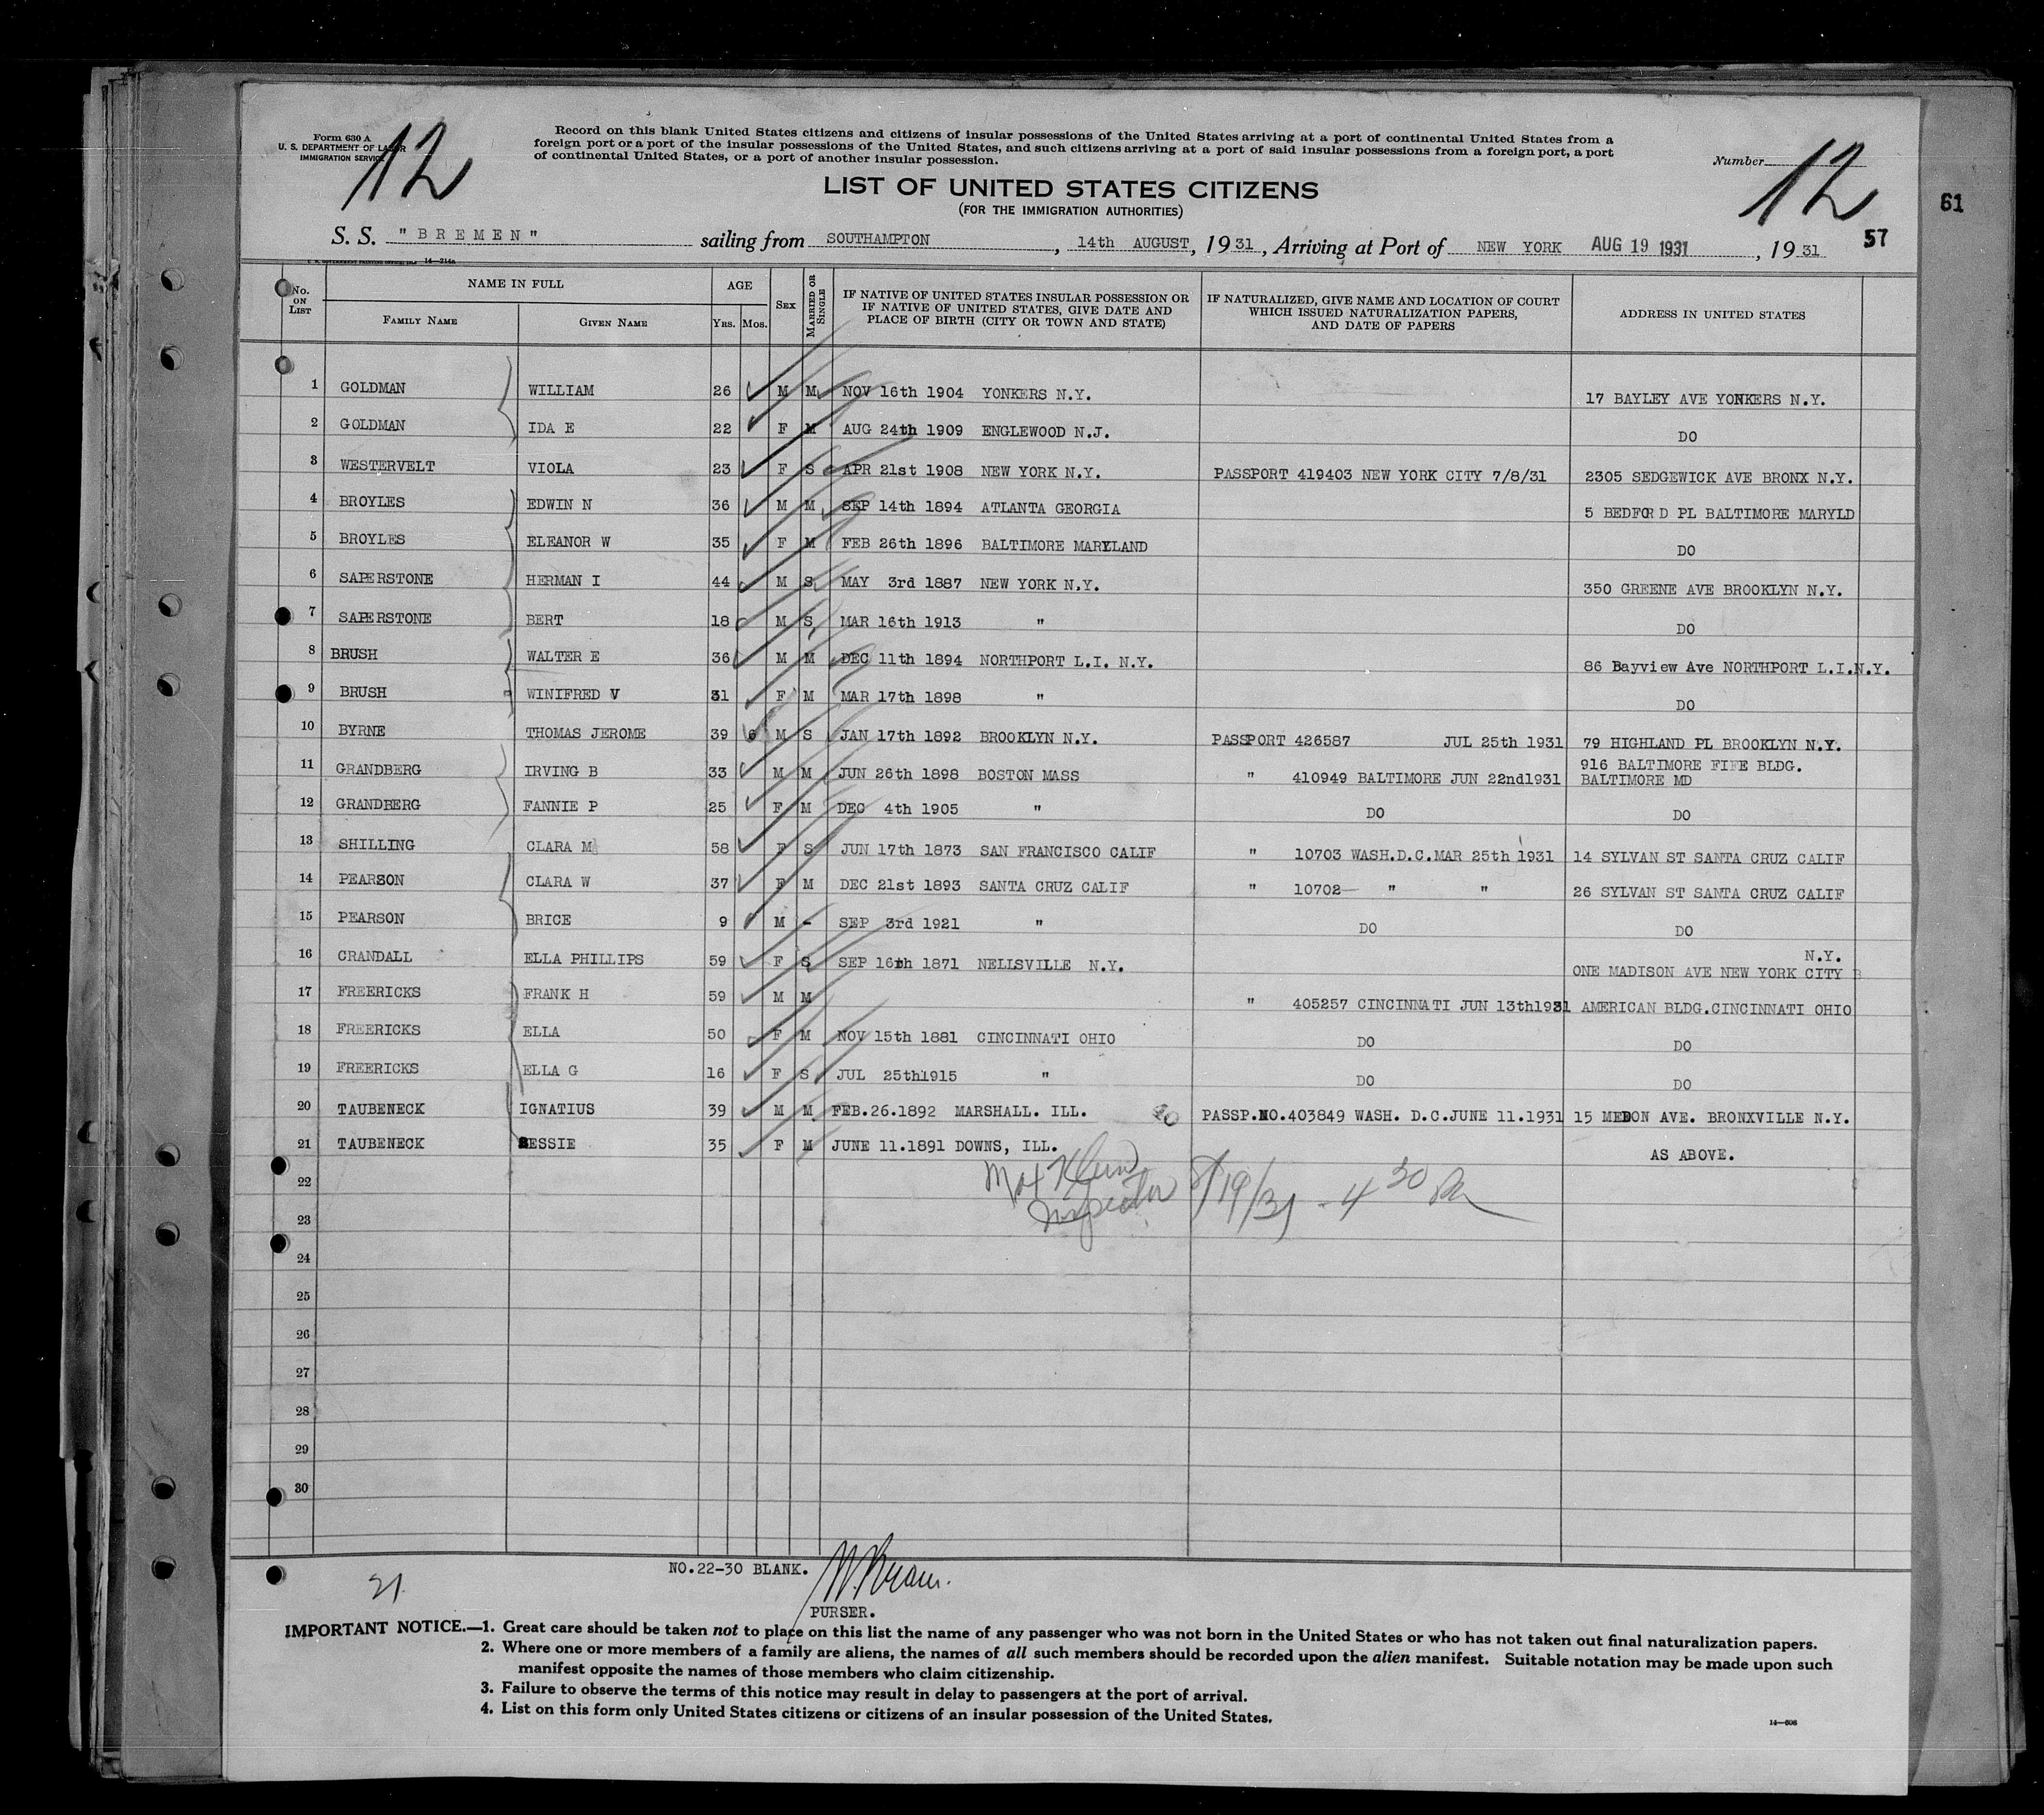 Form 630 A
U. S. DEPARTMENT OF LABOR
IMMIGRATION SERVICE
12
Record on this blank United States citizens and citizens of insular possessions of the United States arriving at a port of continental United States from a
foreign port or a port of the insular possessions of the United States, and such citizens arriving at a port of said insular possessions from a foreign port, a port
of continental United States, or a port of another insular possession.
Number 12
LIST OF UNITED STATES CITIZENS
(FOR THE IMMIGRATION AUTHORITIES)
61
57
S. S. "BREMEN" sailing from SOUTHAMPTON, 14th AUGUST, 1931, Arriving at Port of NEW YORK AUG 19 1931, 1931
14—214a
No. ON LIST NAME IN FULL FAMILY NAME GIVEN NAME AGE YRS. MOS. SEX MARRIED OR SINGLE IF NATIVE OF UNITED STATES INSULAR POSSESSION OR IF NATIVE OF UNITED STATES, GIVE DATE AND PLACE OF BIRTH (CITY OR TOWN AND STATE) IF NATURALIZED, GIVE NAME AND LOCATION OF COURT WHICH ISSUED NATURALIZATION PAPERS, AND DATE OF PAPERS ADDRESS IN UNITED STATES
1 GOLDMAN WILLIAM 26 M M NOV 16th 1904 YONKERS N.Y. 17 BAYLEY AVE YONKERS N.Y.
2 GOLDMAN IDA E 22 F M AUG 24th 1909 ENGLEWOOD N.J. DO
3 WESTERVELT VIOLA 23 F S APR 21st 1908 NEW YORK N.Y. PASSPORT 419403 NEW YORK CITY 7/8/31 2305 SEDGEWICK AVE BRONX N.Y.
4 BROYLES EDWIN N 36 M M SEP 14th 1894 ATLANTA GEORGIA 5 BEDFORD PL BALTIMORE MARYLD
5 BROYLES ELEANOR W 35 F M FEB 26th 1896 BALTIMORE MARYLAND DO
6 SAPERSTONE HERMAN I 44 M S MAY 3rd 1887 NEW YORK N.Y. 350 GREENE AVE BROOKLYN N.Y.
7 SAPERSTONE BERT 18 M S MAR 16th 1913 " DO
8 BRUSH WALTER E 36 M M DEC 11th 1894 NORTHPORT L.I. N.Y. 86 Bayview Ave NORTHPORT L.I.N.Y.
9 BRUSH WINIFRED V 31 F M MAR 17th 1898 " DO
10 BYRNE THOMAS JEROME 39 6 M S JAN 17th 1892 BROOKLYN N.Y. PASSPORT 426587 JUL 25th 1931 79 HIGHLAND PL BROOKLYN N.Y.
11 GRANDBERG IRVING B 33 M M JUN 26th 1898 BOSTON MASS " 410949 BALTIMORE JUN 22nd1931 916 BALTIMORE FIFE BLDG. BALTIMORE MD
12 GRANDBERG FANNIE P 25 F M DEC 4th 1905 " DO DO
13 SHILLING CLARA M 58 F S JUN 17th 1873 SAN FRANCISCO CALIF " 10703 WASH.D.C.MAR 25th 1931 14 SYLVAN ST SANTA CRUZ CALIF
14 PEARSON CLARA W 37 F M DEC 21st 1893 SANTA CRUZ CALIF " 10702 " " 26 SYLVAN ST SANTA CRUZ CALIF
15 PEARSON BRICE 9 M - SEP 3rd 1921 " DO DO
16 CRANDALL ELLA PHILLIPS 59 F S SEP 16th 1871 NELLSVILLE N.Y. ONE MADISON AVE NEW YORK CITY N.Y.
17 FREERICKS FRANK H 59 M M " 405257 CINCINNATI JUN 13th1931 AMERICAN BLDG.CINCINNATI OHIO
18 FREERICKS ELLA 50 F M NOV 15th 1881 CINCINNATI OHIO DO DO
19 FREERICKS ELLA G 16 F S JUL 25th1915 " DO DO
20 TAUBENECK IGNATIUS 39 M M FEB.26.1892 MARSHALL. ILL. PASSP.NO.403849 WASH. D.C.JUNE 11.1931 15 MEDON AVE. BRONXVILLE N.Y.
21 TAUBENECK BESSIE 35 F M JUNE 11.1891 DOWNS, ILL. AS ABOVE.
22 Max Klein
Inspector 8/19/31 - 4 30 Pm
23
24
25
26
27
28
29
30
NO.22-30 BLANK.
21
PURSER.
IMPORTANT NOTICE.—1. Great care should be taken not to place on this list the name of any passenger who was not born in the United States or who has not taken out final naturalization papers.
2. Where one or more members of a family are aliens, the names of all such members should be recorded upon the alien manifest. Suitable notation may be made upon such
manifest opposite the names of those members who claim citizenship.
3. Failure to observe the terms of this notice may result in delay to passengers at the port of arrival.
4. List on this form only United States citizens or citizens of an insular possession of the United States.
14—608